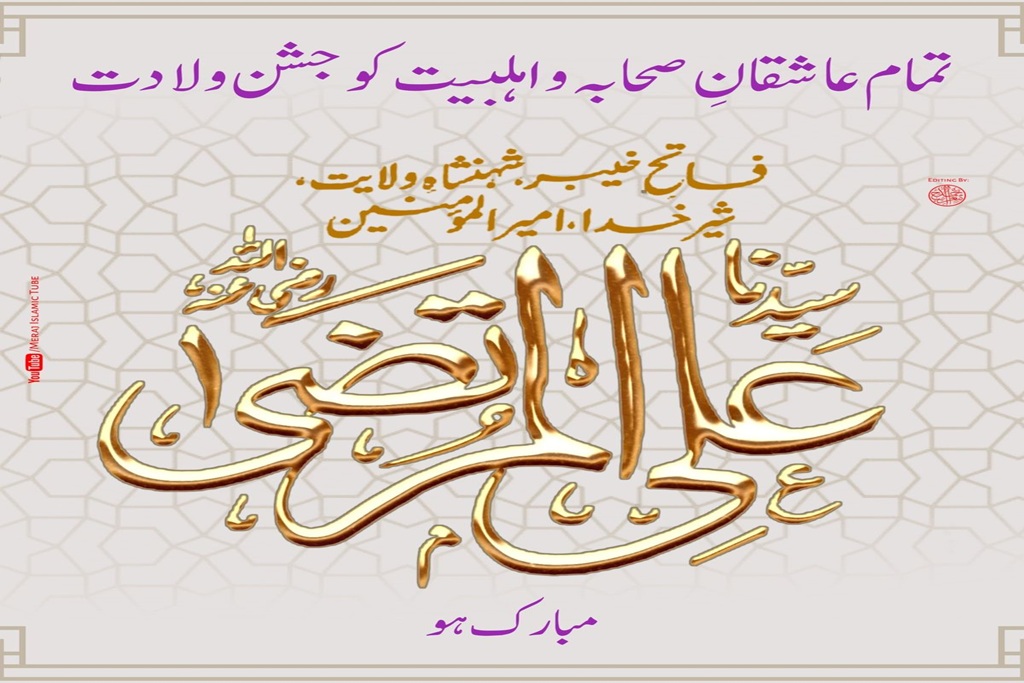 تمام عاشقانِ صحابہ و اہلبیت کو جشن ولادت
فاتحِ خیبر، شہنشاہِ ولایت،
شیر خدا، امیر المؤمنین
سیّدنا
علی المرتضیٰ
رضی اللہ عنہ
مبارک ہو
EDITING BY:
YouTube/MERAJ ISLAMIC TUBE